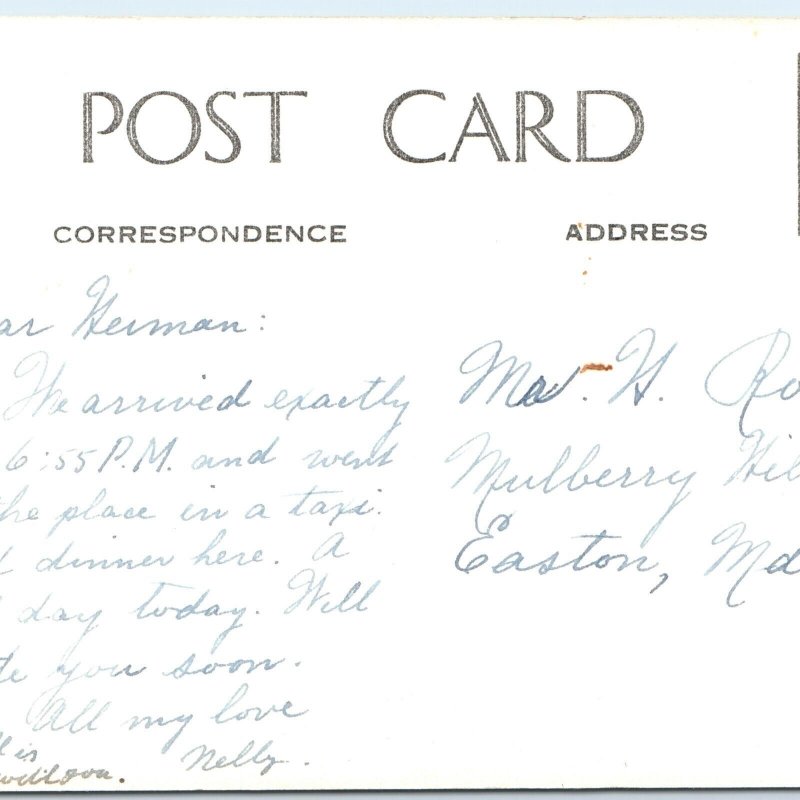 POST CARD
CORRESPONDENCE
ADDRESS
ar Herman:
We arrived exactly
6:55 P.M. and went
the place in a taxi.
dinner here. A
day today. Will
te you soon.
All my love
Nelly.
is
Mr. H. Ro
Mulberry Hil
Easton, Md